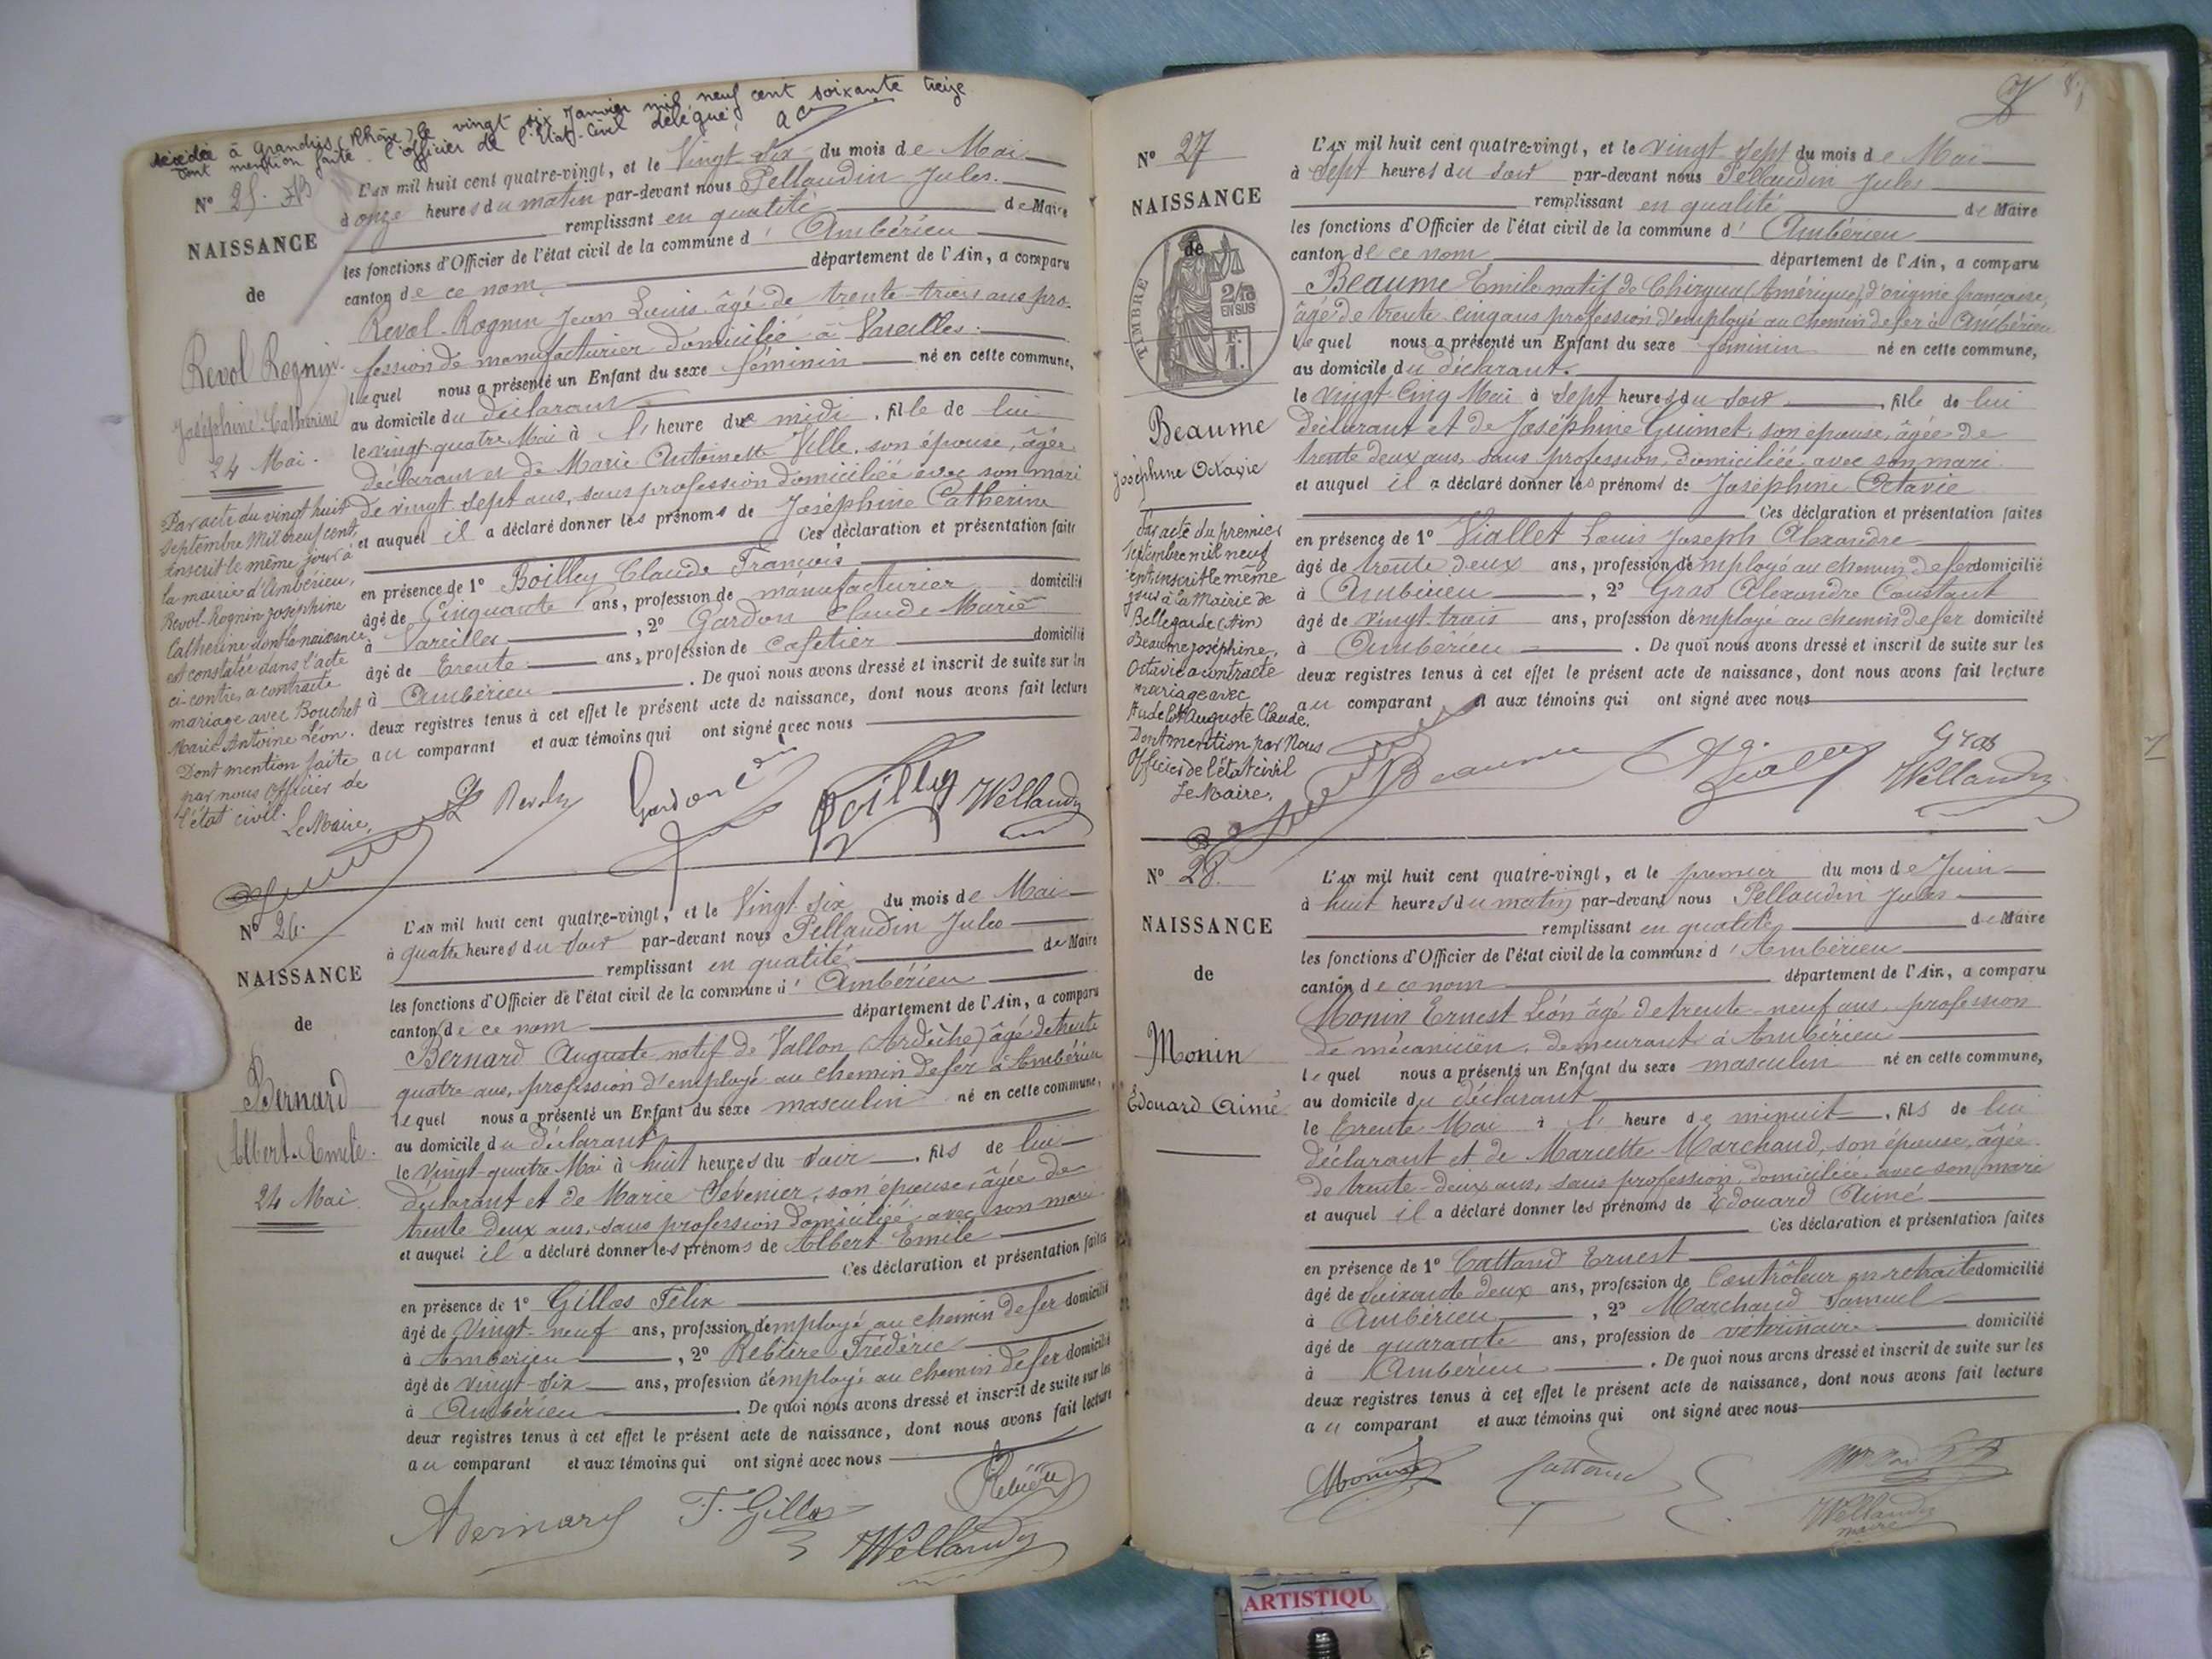 décédée à Grandris (Rhône) le vingt six Janvier mil neuf cent soixante treize
dont mention faite. l'Officier de l'Etat-Civil délégué,
N° 25.
NAISSANCE
de
Revol Rognin.
Joséphine Catherine
24 Mai.
Par acte du vingt huit
septembre Mil neuf cent,
inscrit le même jour à
la mairie d'Ambérieu,
Revol-Rognin Joséphine
Catherine dont la naissance
est constatée dans l'acte
ci-contre, a contracté
mariage avec Bouchet
Marie Antoine Léon.
Dont mention faite
par nous Officier de
l'état civil.
Le Maire,
L'AN mil huit cent quatre-vingt, et le Vingt Six du mois de Mai
à onze heures du matin par-devant nous Pellaudin Jules.
remplissant en qualité de Maire
les fonctions d'Officier de l'état civil de la commune d' Ambérieu
canton de ce nom département de l'Ain, a comparu
Revol-Rognin Jean Louis âgé de trente-trois ans pro-
fession de manufacturier domicilié à Vareilles.
lequel nous a présenté un Enfant du sexe féminin né en cette commune,
au domicile du déclarant
le vingt-quatre Mai à l' heure de midi, fille de lui
déclarant et de Marie Antoinette Ville, son épouse, âgée
de vingt-sept ans, sans profession domiciliée avec son mari
et auquel il a déclaré donner les prénoms de Joséphine Catherine
Ces déclaration et présentation faites
en présence de 1° Boilley Claude François
âgé de Cinquante ans, profession de manufacturier domicilié
à Vareilles, 2° Gardon Claude Marie
âgé de trente ans, profession de cafetier domicilié
à Ambérieu. De quoi nous avons dressé et inscrit de suite sur les
deux registres tenus à cet effet le présent acte de naissance, dont nous avons fait lecture
au comparant et aux témoins qui ont signé avec nous
Gardon Boilley Pellaudin
N° 26.
NAISSANCE
de
Bernard
Albert-Emile.
24 Mai.
L'AN mil huit cent quatre-vingt, et le Vingt Six du mois de Mai
à quatre heures du soir par-devant nous Pellaudin Jules
remplissant en qualité de Maire
les fonctions d'Officier de l'état civil de la commune d' Ambérieu
canton de ce nom département de l'Ain, a comparu
Bernard Auguste natif de Vallon (Ardèche) âgé de trente
quatre ans, profession d'employé au chemin de fer à Ambérieu
lequel nous a présenté un Enfant du sexe masculin né en cette commune,
au domicile du déclarant
le Vingt-quatre Mai à huit heures du soir, fils de lui
déclarant et de Marie Sévenier, son épouse, âgée de
trente deux ans, sans profession domiciliée avec son mari
et auquel il a déclaré donner les prénoms de Albert Emile
Ces déclaration et présentation faites
en présence de 1° Gillos Félix
âgé de Vingt-neuf ans, profession d'employé au chemin de fer domicilié
à Ambérieu, 2° Rebière Frédéric
âgé de vingt-six ans, profession d'employé au chemin de fer domicilié
à Ambérieu. De quoi nous avons dressé et inscrit de suite sur les
deux registres tenus à cet effet le présent acte de naissance, dont nous avons fait lecture
au comparant et aux témoins qui ont signé avec nous
ABernard F. Gillos Rebière
Pellaudin
N° 27
NAISSANCE
de
TIMBRE
2/10
EN SUS
F.
1.
Beaume
Joséphine Octavie
Par acte du premier
septembre mil neuf
cent, inscrit le même
jour à la Mairie de
Bellegarde (Ain)
Beaume Joséphine,
Octavie a contracté
mariage avec
Auguste Claude.
Dont mention par Nous
Officier de l'état civil
Le Maire,
L'AN mil huit cent quatre-vingt, et le vingt sept du mois de Mai
à Sept heures du soir par-devant nous Pellaudin Jules
remplissant en qualité de Maire
les fonctions d'Officier de l'état civil de la commune d' Ambérieu
canton de ce nom département de l'Ain, a comparu
Beaume Emile natif de (Amérique), d'origine française,
âgé de trente cinq ans profession d'employé au chemin de fer à Ambérieu
lequel nous a présenté un Enfant du sexe féminin né en cette commune,
au domicile du déclarant.
le vingt-cinq Mai à Sept heures du soir, fille de lui
déclarant et de Joséphine Guimet, son épouse, âgée de
trente deux ans, sans profession, domiciliée avec son mari
et auquel il a déclaré donner les prénoms de Joséphine Octavie
Ces déclaration et présentation faites
en présence de 1° Viallet Louis Joseph Alexandre
âgé de trente deux ans, profession d'employé au chemin de fer domicilié
à Ambérieu, 2° Gras Alexandre Constant
âgé de vingt trois ans, profession d'employé au chemin de fer domicilié
à Ambérieu. De quoi nous avons dressé et inscrit de suite sur les
deux registres tenus à cet effet le présent acte de naissance, dont nous avons fait lecture
au comparant et aux témoins qui ont signé avec nous
Beaume Viallet Gras
Pellaudin
N° 28.
NAISSANCE
de
Monin
Edouard Aimé
L'AN mil huit cent quatre-vingt, et le premier du mois de Juin
à huit heures du matin par-devant nous Pellaudin Jules
remplissant en qualité de Maire
les fonctions d'Officier de l'état civil de la commune d' Ambérieu
canton de ce nom département de l'Ain, a comparu
Monin Ernest Léon âgé de trente-neuf ans, profession
de mécanicien, demeurant à Ambérieu
lequel nous a présenté un Enfant du sexe masculin né en cette commune,
au domicile du déclarant
le trente Mai à l' heure de minuit, fils de lui
déclarant et de Mariette Marchand, son épouse, âgée
de trente-deux ans, sans profession, domiciliée avec son mari
et auquel il a déclaré donner les prénoms de Edouard Aimé
Ces déclaration et présentation faites
en présence de 1° Cattand Ernest
âgé de soixante deux ans, profession de Contrôleur en retraite domicilié
à Ambérieu, 2° Marchand Samuel
âgé de quarante ans, profession de vétérinaire domicilié
à Ambérieu. De quoi nous avons dressé et inscrit de suite sur les
deux registres tenus à cet effet le présent acte de naissance, dont nous avons fait lecture
au comparant et aux témoins qui ont signé avec nous
Monin Cattand
Pellaudin
maire
ARTISTIQU